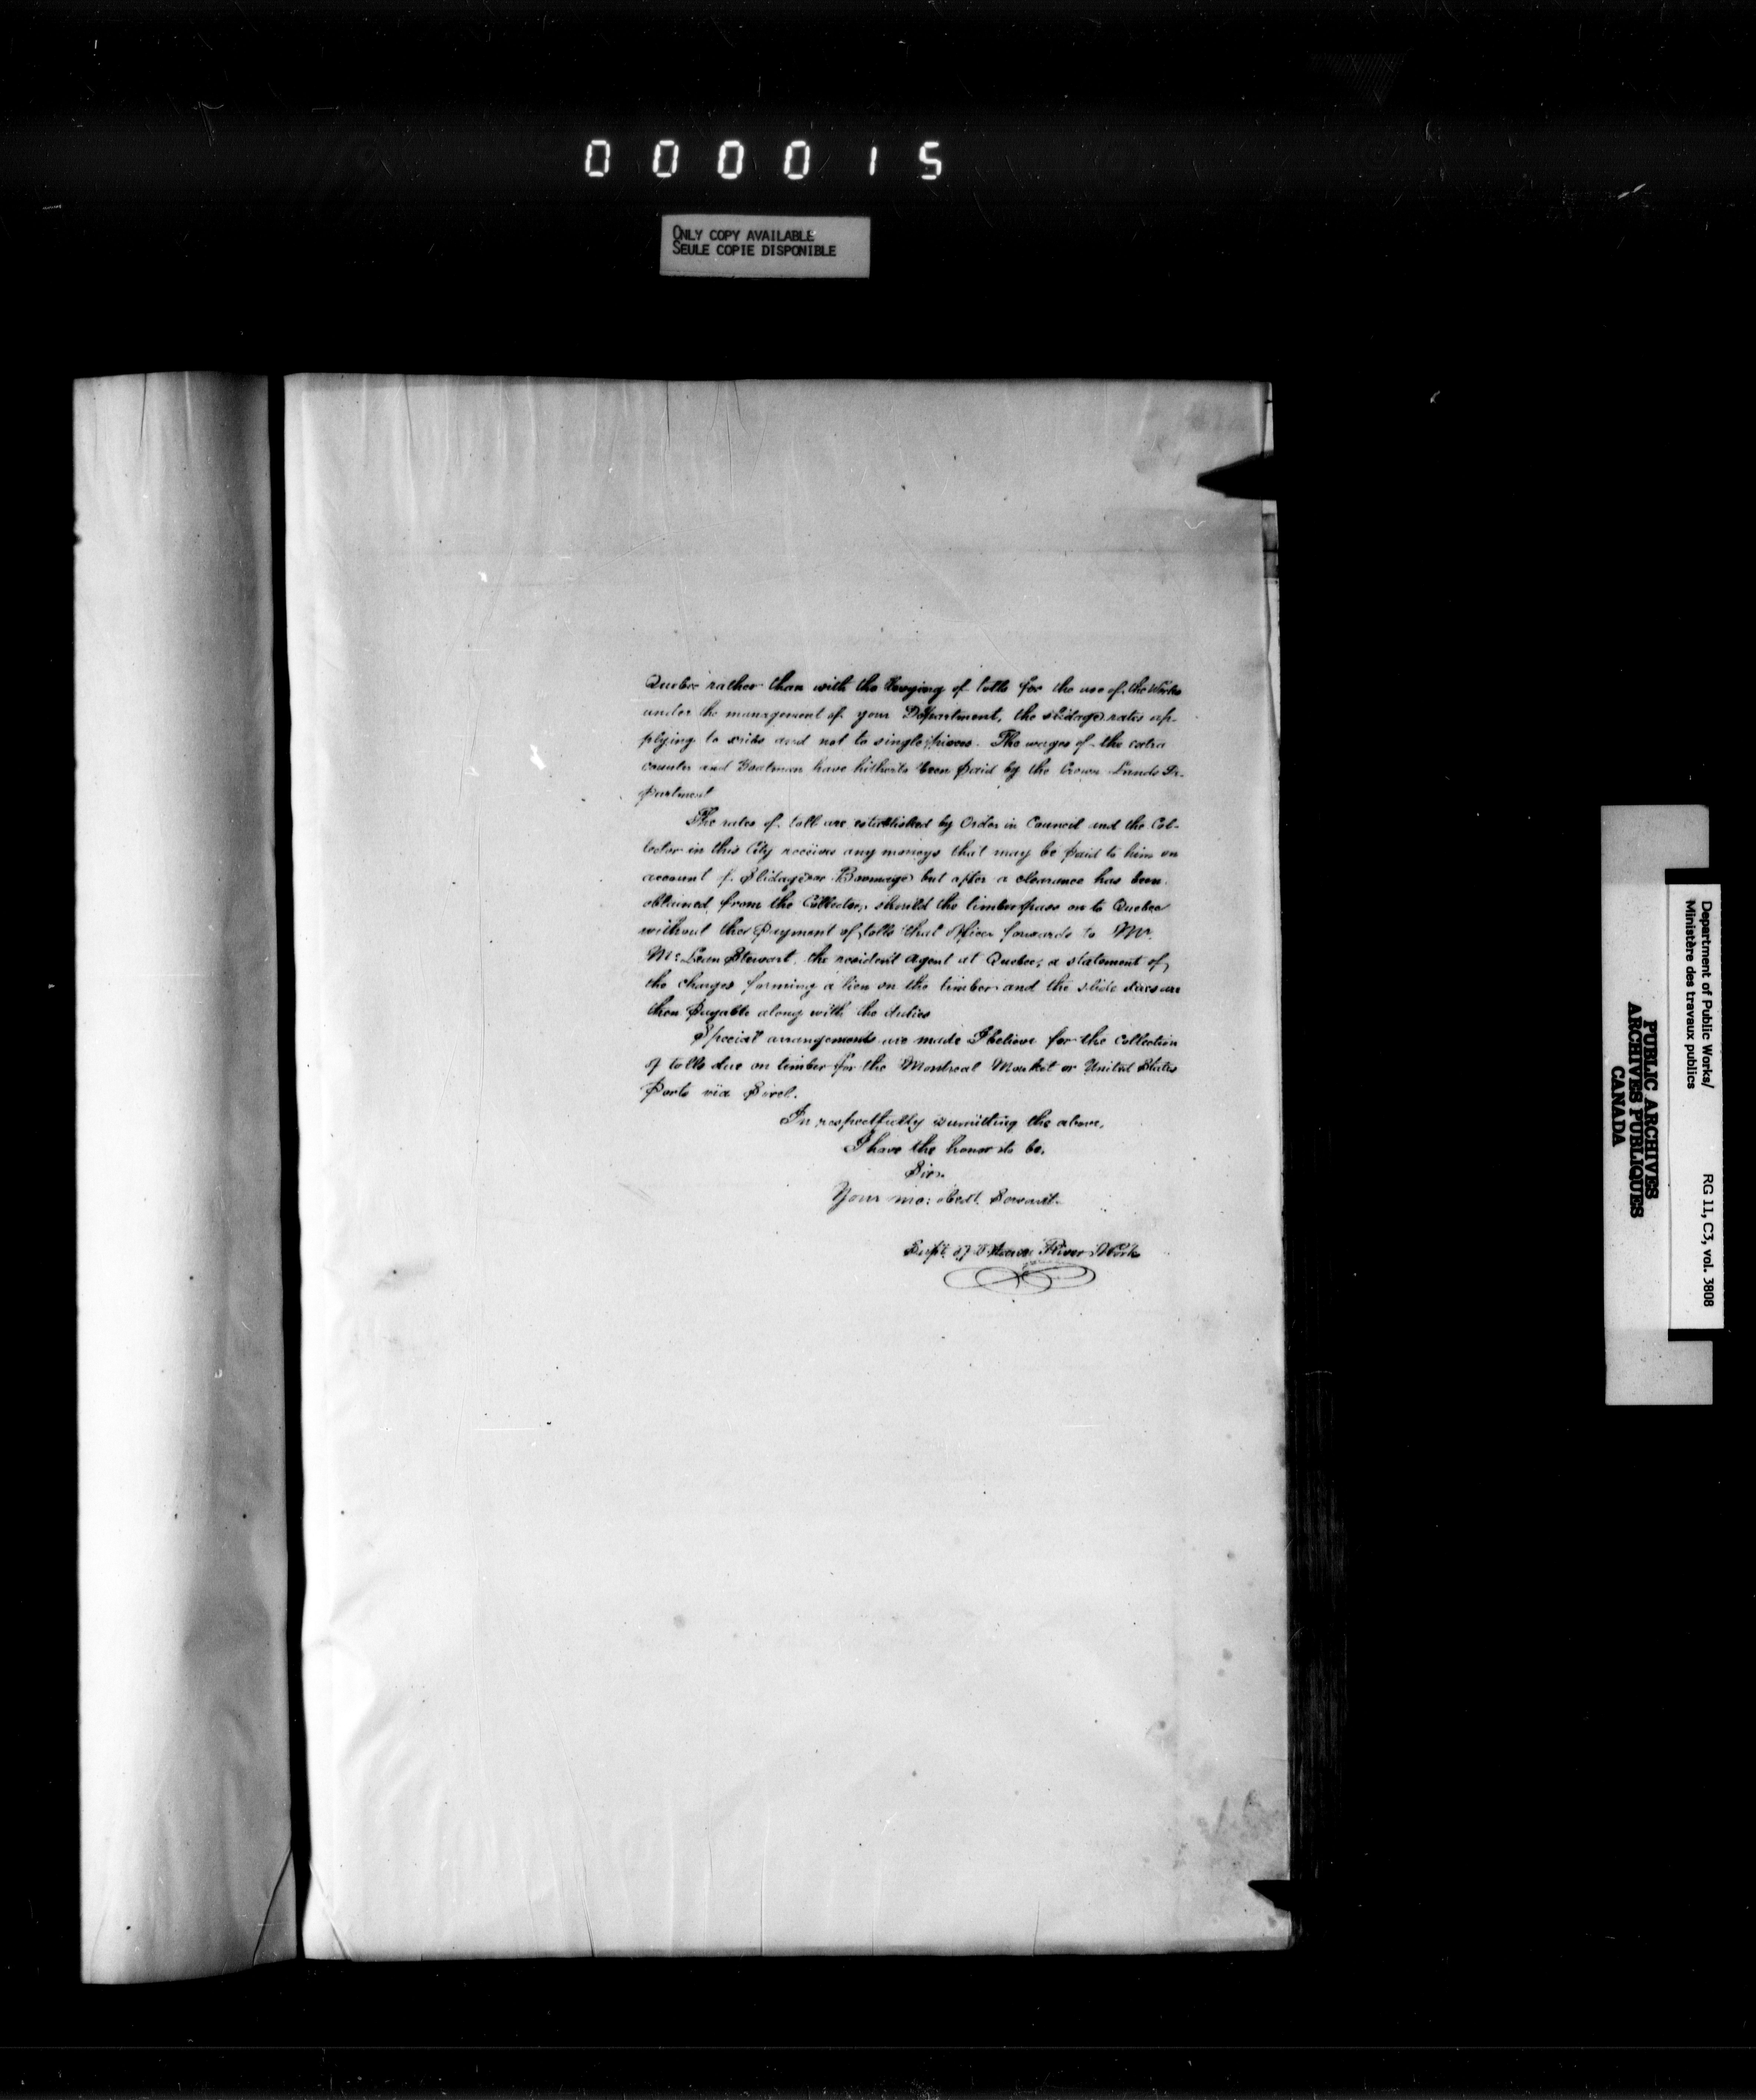 000015
ONLY COPY AVAILABLE
SEULE COPIE DISPONIBLE
Quebec rather than with the levying of tolls for the use of the Works
under the management of your Department, the slidage rates ap-
plying to cribs and not to single pieces. The wages of the extra
counter and Boatman have hitherto been paid by the Crown Lands De-
partment
The rates of toll are established by Order in Council and the Col-
lector in this City receives any moneys that may be paid to him on
account of Slidage or Boomage but after a clearance has been
obtained from the Collector, should the timber pass on to Quebec
without the payment of tolls that officer forwards to Mr.
McLean Stewart the resident Agent at Quebec, a statement of
the charges forming a lien on the timber and the slide dues are
then payable along with the duties
Special arrangements are made I believe for the collection
of tolls due on timber for the Montreal Market or United States
Ports via Sorel.
In respectfully sumitting the above,
I have the honor to be,
Sir,
Your mo: obedt. Servant.
Supt. of Ottawa River Works
Department of Public Works/
Ministère des travaux publics
RG 11, C3, vol. 3808
PUBLIC ARCHIVES
ARCHIVES PUBLIQUES
CANADA